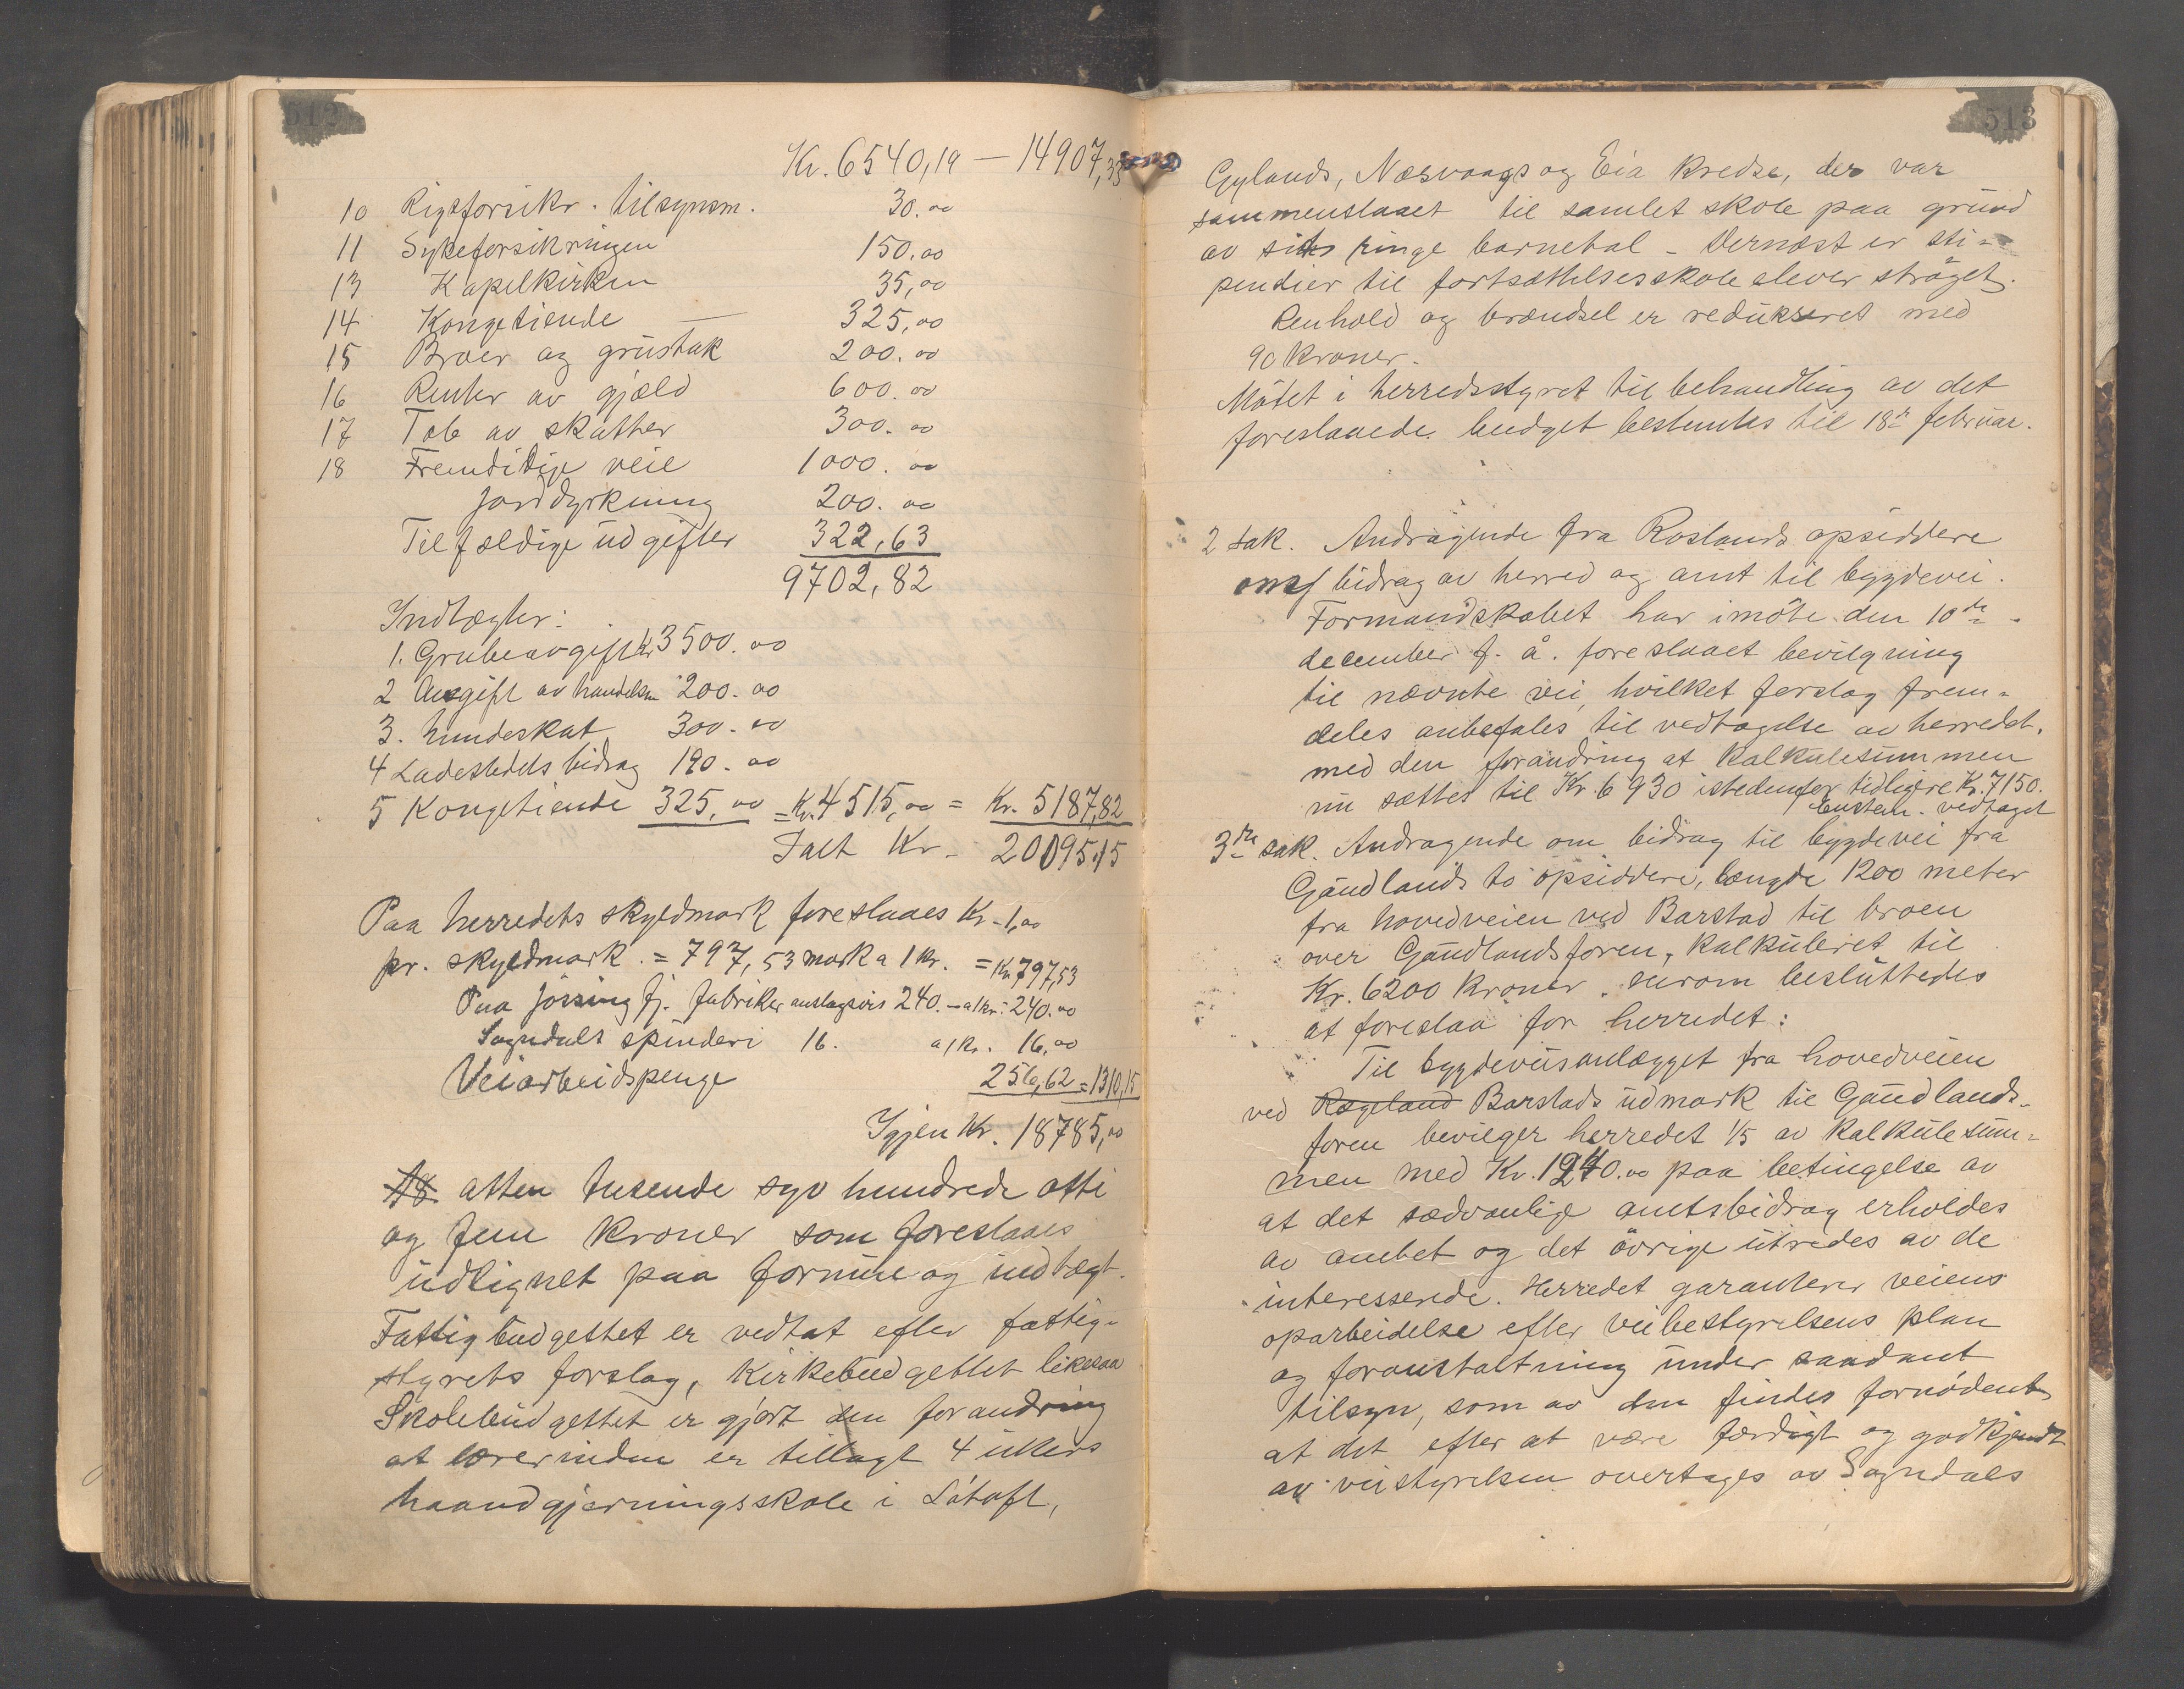 512
Kr. 6540,19 — 14907,33
10 Rigsforsikr. tilsynsm. 30.00
11 Sykeforsikringen 150.00
13 Kapelkirken 35,00
14 Kongetiende — 325,00
15 Broer og grustak 200.00
16 Renter av gjæld 600.00
17 Tab av skatter 300.00
18 Fremtidige veie 1000.00
jorddyrkning 200.00
Tilfældige udgifter 322,63
9702,82
Indtægter:
1. Grubeavgift kr 3500.00
2 Avgift av handelen 200.00
3. hundeskat 300.00
4 Ladestedets bidrag 190.00
5 Kongetiende 325,00 = Kr. 4515,00 = Kr. 5187,82
Ialt Kr. 20095,15
Paa herredets skyldmark foreslaaes Kr. 1,00
pr. skyldmark = 797,53 mark a 1 kr. = Kr 797,53
Paa Jøssing fj. fabriker anslagsvis 240. — a 1 kr. = 240.00
Sogndals spinderi 16. a 1 kr. 16,00
Veiarbeidspenge 256,62 = 1310,15
Igjen Kr. 18785,00
18 atten tusende syv hundrede otti
og fem kroner som foreslaaes
udlignet paa formue og indtægt.
Fattigbudgettet er vedtat efter fattig-
styrets forslag, Kirkebudgettet likesaa
Skolebudgettet er gjort den forandring
at lærerinden er tillagt 4 ukers
haandgjerningsskole i Låtoft,
513
Gylands, Næsvaags og Eia kredse, der var
sammenslaaet til samlet skole paa grund
av sit ringe barnetal - Dernæst er sti-
pendier til fortsættelsesskoleelever strøget.
Renhold og brændsel er redukseret med
90 kroner.
Møtet i herredsstyret til behandling av det
foreslaaede budget bestemtes til 18de februar.
2 sak. Andragende fra Roslands opsiddere
om bidrag av herred og amt til bygdevei.
Formandskabet har i møte den 10de
december f. å. foreslaaet bevilgning
til nævnte vei, hvilket forslag frem-
deles anbefales til vedtagelse av herredst.
med den forandring at kalkulesummen
nu sættes til Kr. 6930 istedenfor tidligere Kr. 7150.
Enstem. vedtaget
3die sak. Andragende om bidrag til bygdevei fra
Gaudlands to opsiddere, længde 1200 meter
fra hovedveien ved Barstad til broen
over Gaudlandsforen, kalkuleret til
Kr. 6200 kroner. herom besluttedes
at foreslaa for herredet:
Til bygdeveisanlægget fra hovedveien
ved Rægeland Barstads udmark til Gaudlands-
foren bevilger herredet 1/5 av kalkulesum-
men med Kr. 1240.00 paa betingelse av
at det sædvanlige amtsbidrag erholdes
av amtet og det øvrige utredes av de
interesserede. Herredet garanterer veiens
oparbeidelse efter veibestyrelsens plan
og foranstaltning under saadant
tilsyn, som av den findes fornødent
at det efter at være færdigt og godkjendt
av veistyrelsen overtages av Sogndals